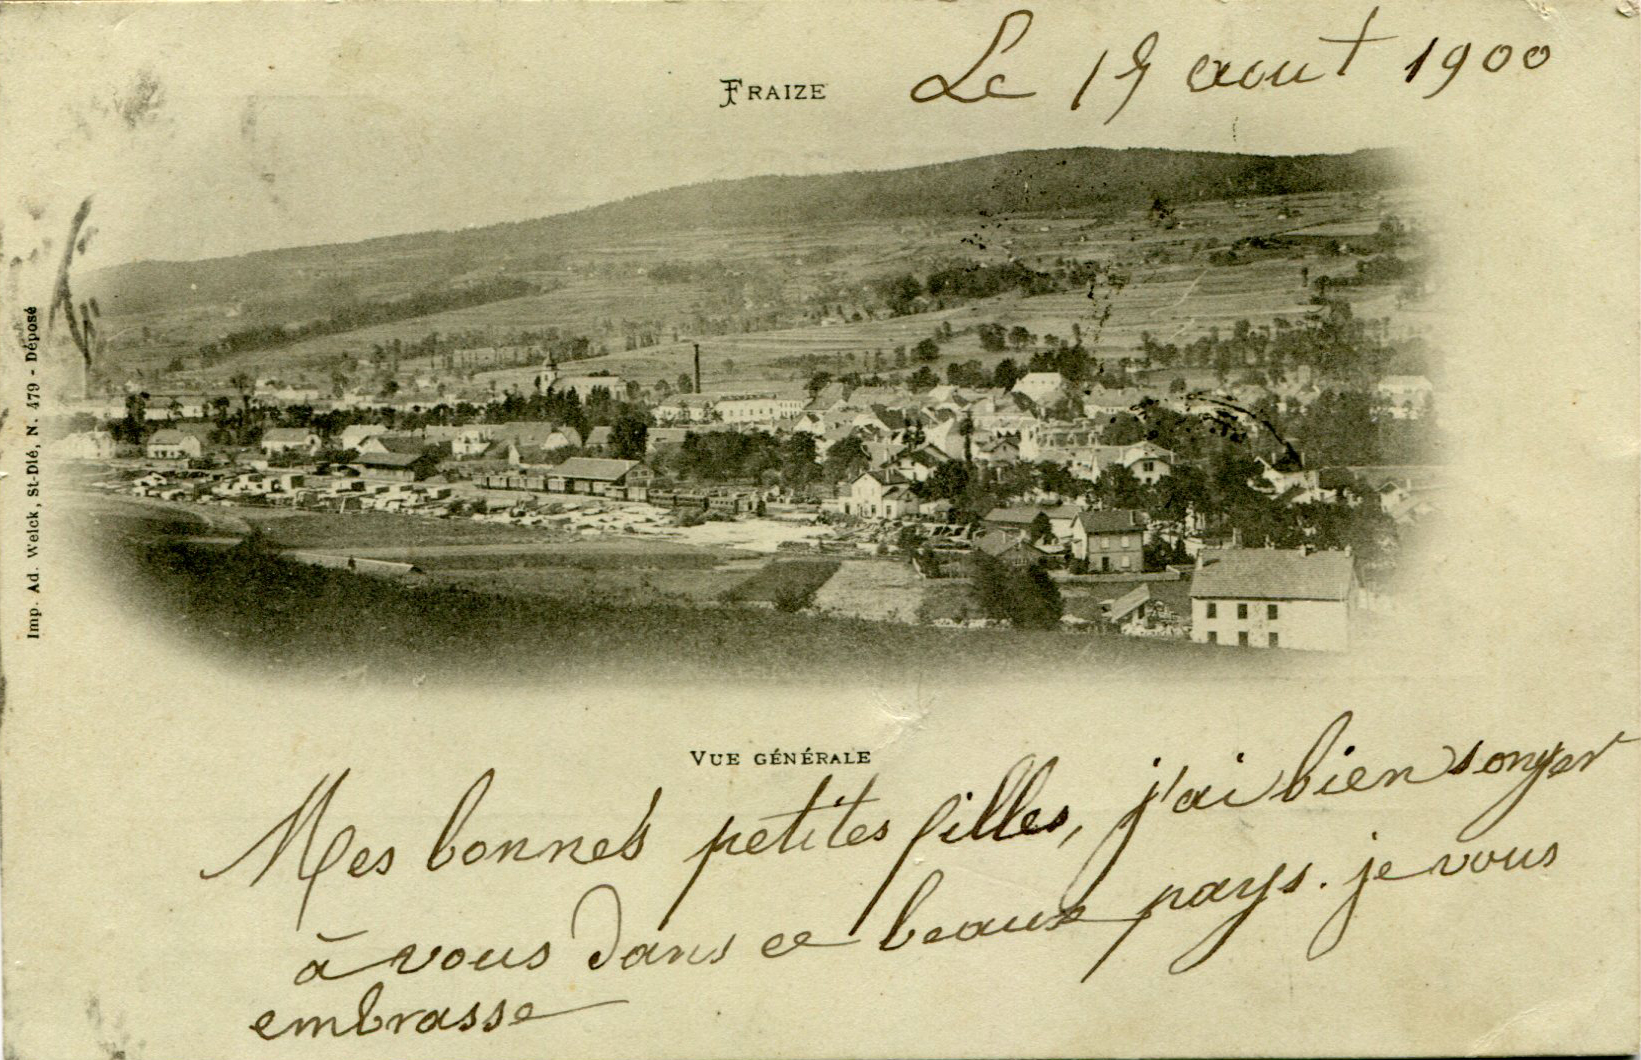 FRAIZE
Le 15 aout 1900
Imp. Ad. Weick, St-Dié, N. 479 - Déposé
VUE GÉNÉRALE
Mes bonnes petites filles, j'ai bien songer
à vous dans ce beaux pays. je vous
embrasse